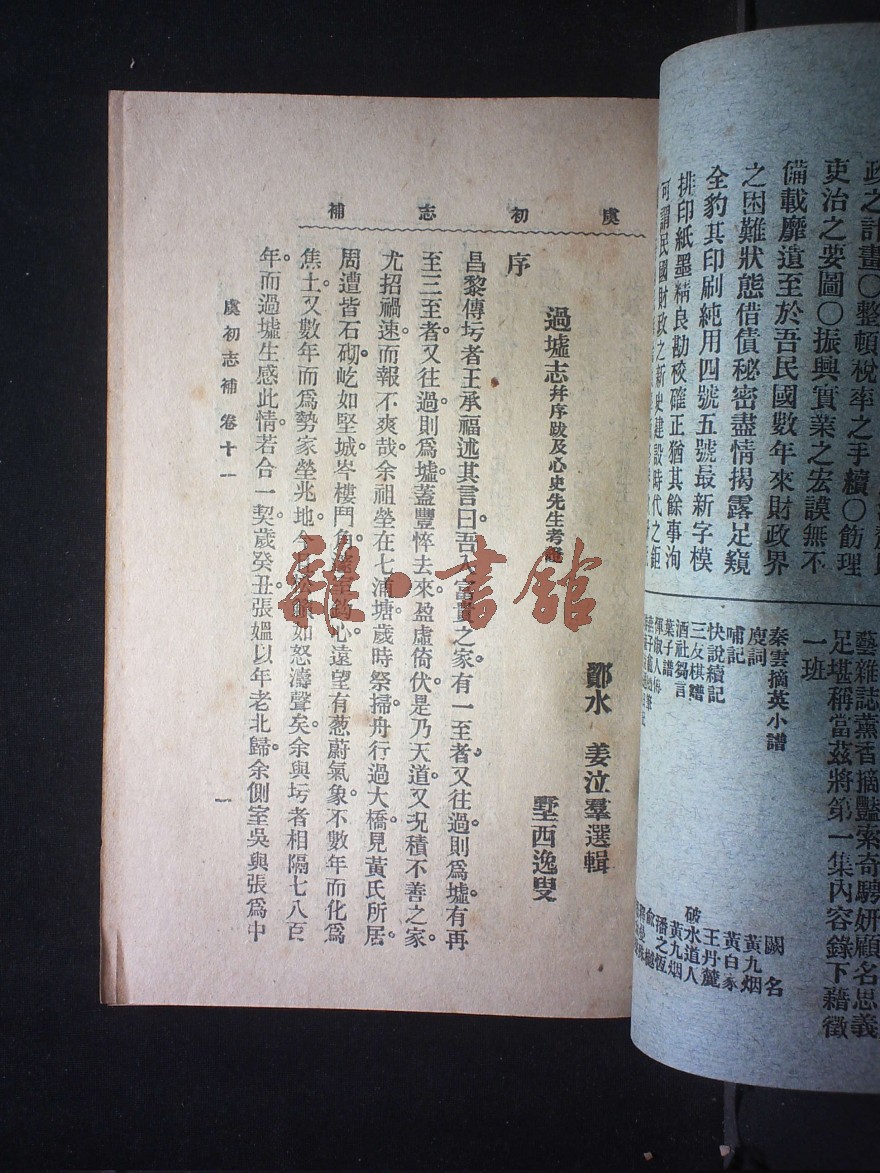 政之計畫〇整頓稅率之手續〇飭理
吏治之要圖〇振興實業之宏謨無不
備載靡遺至於吾民國數年來財政界
之困難狀態借債秘密盡情揭露足窺
全豹其印刷純用四號五號最新字模
排印紙墨精良勘校確正猶其餘事洵
可謂民國財政之新史建設時代之鉅
藝雜誌薰香摘豔索奇騁妍顧名思義
足堪稱當茲將第一集內容錄下藉徵
一班
秦雲擷英小譜
廋詞 黃九烟
哺記 黃百家
快說續記 王丹麓
三友棋譜 破水道人
酒社芻言 黃九烟
葉子譜 潘之恆
闕名
虞初志補
鄞水 姜泣羣選輯
過墟志并序跋及心史先生考證
墅西逸叟
序
昌黎傳圬者王承福述其言曰吾入富貴之家有一至者又往過則爲墟有再
至三至者又往過則爲墟蓋豐悴去來盈虛倚伏是乃天道又況積不善之家
尤招禍速而報不爽哉余祖塋在七浦塘歲時祭掃舟行過大橋見黃氏所居
周遭皆石砌屹如堅城岑樓鬥角心遠望有葱蔚氣象不數年而化爲
焦土又數年而爲勢家塋兆地今如怒濤聲矣余與圬者相隔七八百
年而過墟生感此情若合一契歲癸丑張媼以年老北歸余側室吳與張爲中
虞初志補 卷十一
一
龍·書館